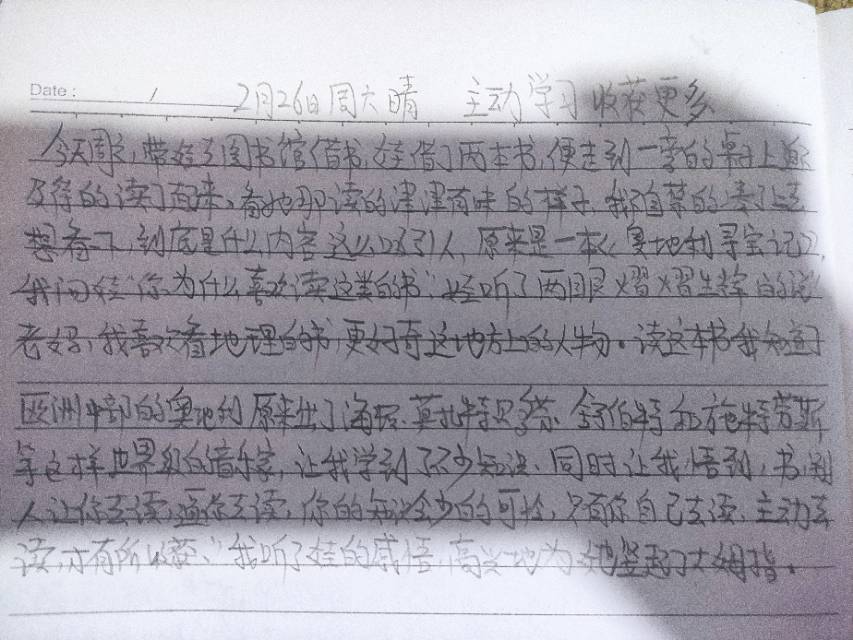 Date: / 2月26日 周六 晴 主动学习 收获更多
今天周六，带娃去图书馆借书，娃借了两本书，便走到一旁的桌子上迫
及待的读了起来，看她那读的津津有味的样子，我
想看下，到底是什么内容这么吸引人，原来是一本《奥地利寻宝记》，
我问娃"你为什么喜欢读这类的书"，娃听了两眼熠熠生辉的说
老妈，我喜欢看地理的书，更好奇这地方上的人物。读这本书我知道了
欧洲中部的奥地利原来出了海顿、莫扎特、贝多芬、舒伯特和施特劳斯
等这样世界级的音乐家，让我学到了不少知识、同时让我悟到，书，别
人让你去读，逼你去读，你的知识会少的可怜，只有你自己去读、主动去
读，才有所收获、"我听了娃的感悟，高兴地为她竖起了大姆指。